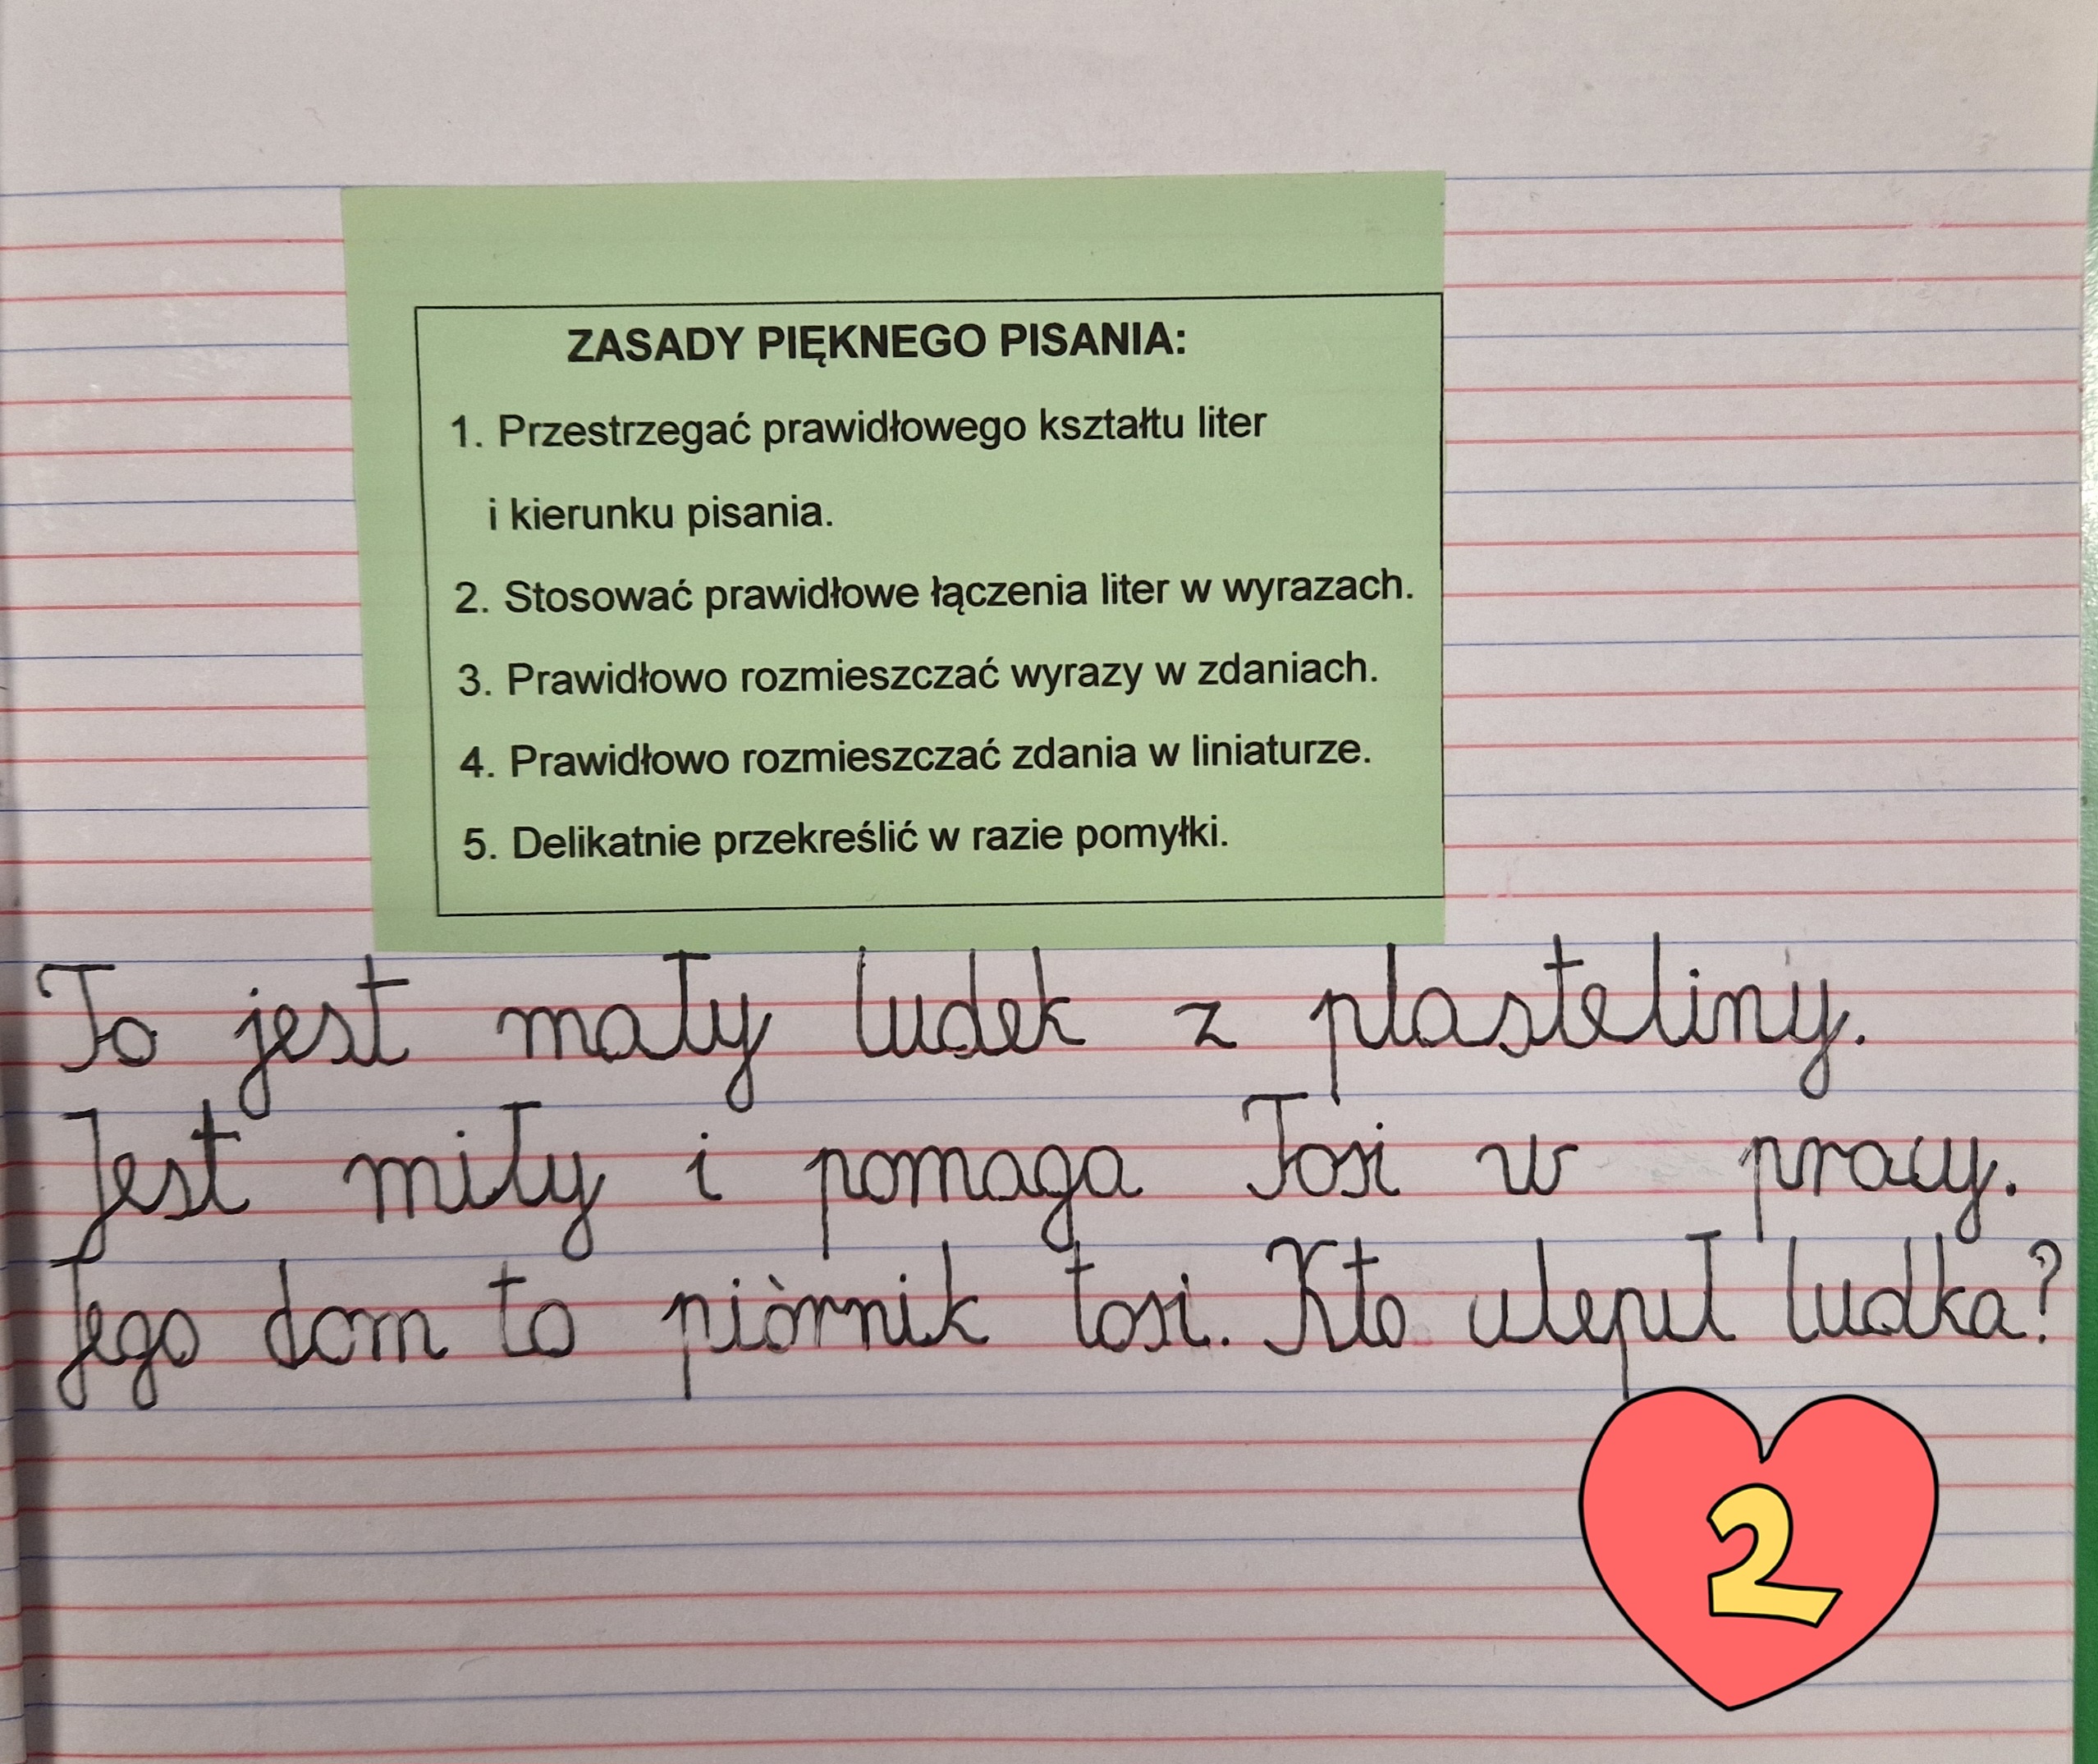 ZASADY PIĘKNEGO PISANIA:
1. Przestrzegać prawidłowego kształtu liter
i kierunku pisania.
2. Stosować prawidłowe łączenia liter w wyrazach.
3. Prawidłowo rozmieszczać wyrazy w zdaniach.
4. Prawidłowo rozmieszczać zdania w liniaturze.
5. Delikatnie przekreślić w razie pomyłki.
To jest mały ludek z plasteliny.
Jest miły i pomaga Tosi w pracy.
Jego dom to piórnik tosi. Kto ulepił ludka?
2